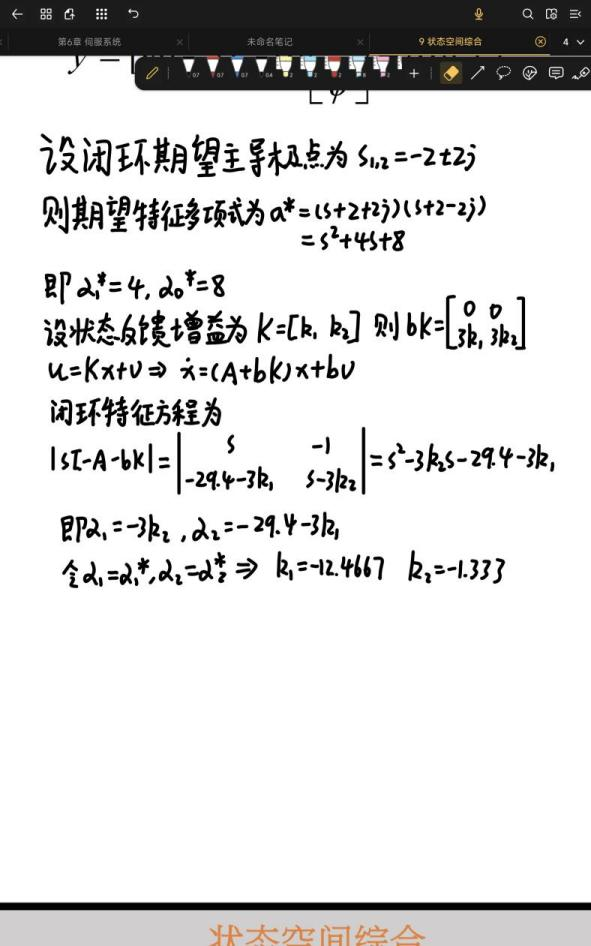 第6章 伺服系统
未命名笔记
9 状态空间综合
4
07 07 07 04 2 2 2 8 2
y =
[φ]
设闭环期望主导极点为 s1,2=-2±2j
则期望特征多项式为 a*=(s+2+2j)(s+2-2j)
=s²+4s+8
即 α1*=4, α0*=8
设状态反馈增益为 K=[k1 k2] 则 bK=[0 0
3k1 3k2]
u=Kx+v⇒ ẋ=(A+bK)x+bv
闭环特征方程为
|sI-A-bK|=| s -1
-29.4-3k1 s-3k2 |=s²-3k2s-29.4-3k1
即α1=-3k2, α2=-29.4-3k1
令α1=α1*, α2=α2* ⇒ k1=-12.4667 k2=-1.333
状态空间综合